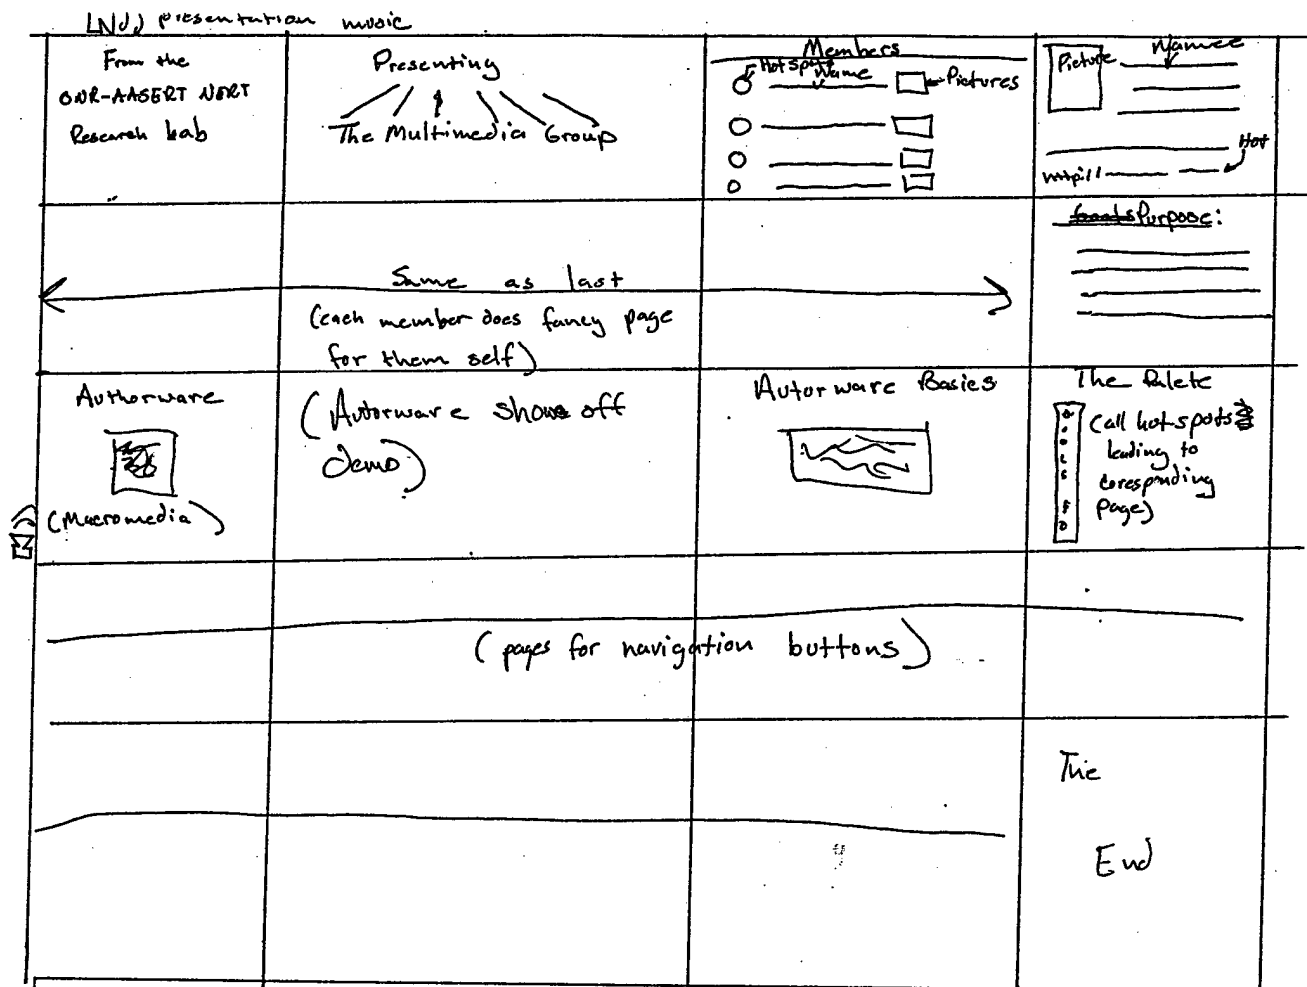 presentation music
From the
ONR-AASERT NERT
Research Lab
Presenting
The Multimedia Group
Members
Hot spots
Name
Pictures
Picture
Namee
Hot
http://
Purpose:
Same as last
(each member does fancy page
for them self)
Authorware
(Macromedia)
(Autorware show off
demo)
Autorware Basics
The Palete
(all hot spots
leading to
coresponding
page)
(pages for navigation buttons)
The
End